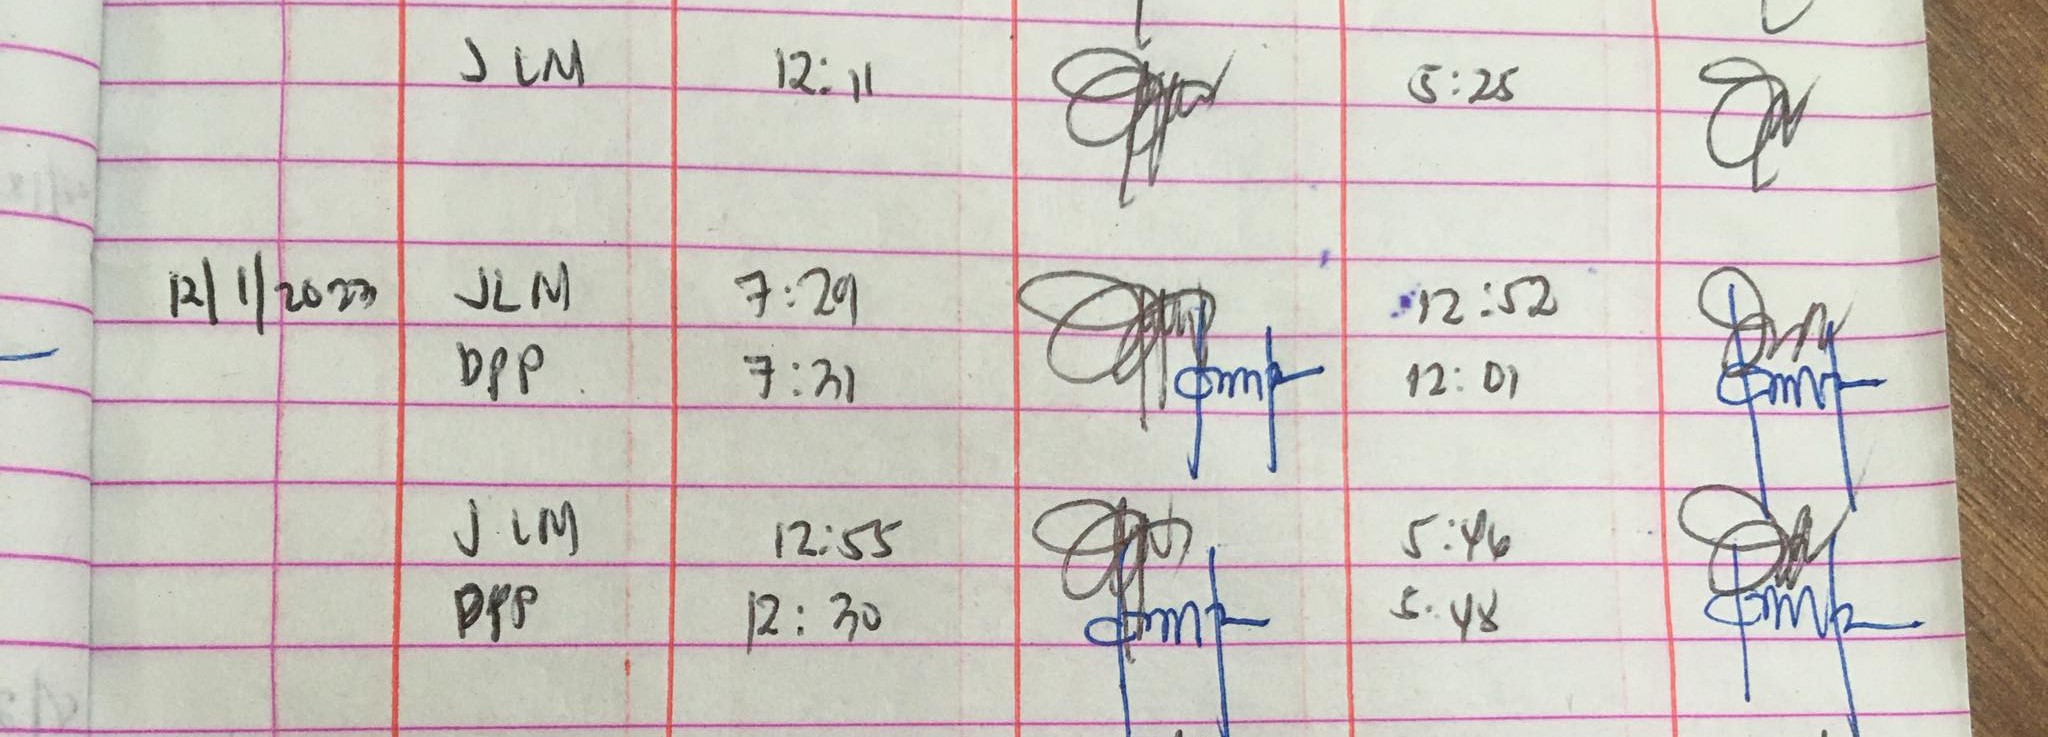 JLM 12:11 5:25
12/1/2023 JLM 7:29 12:52
DPP 7:31 12:01
JLM 12:55 5:46
DPP 12:30 5:48